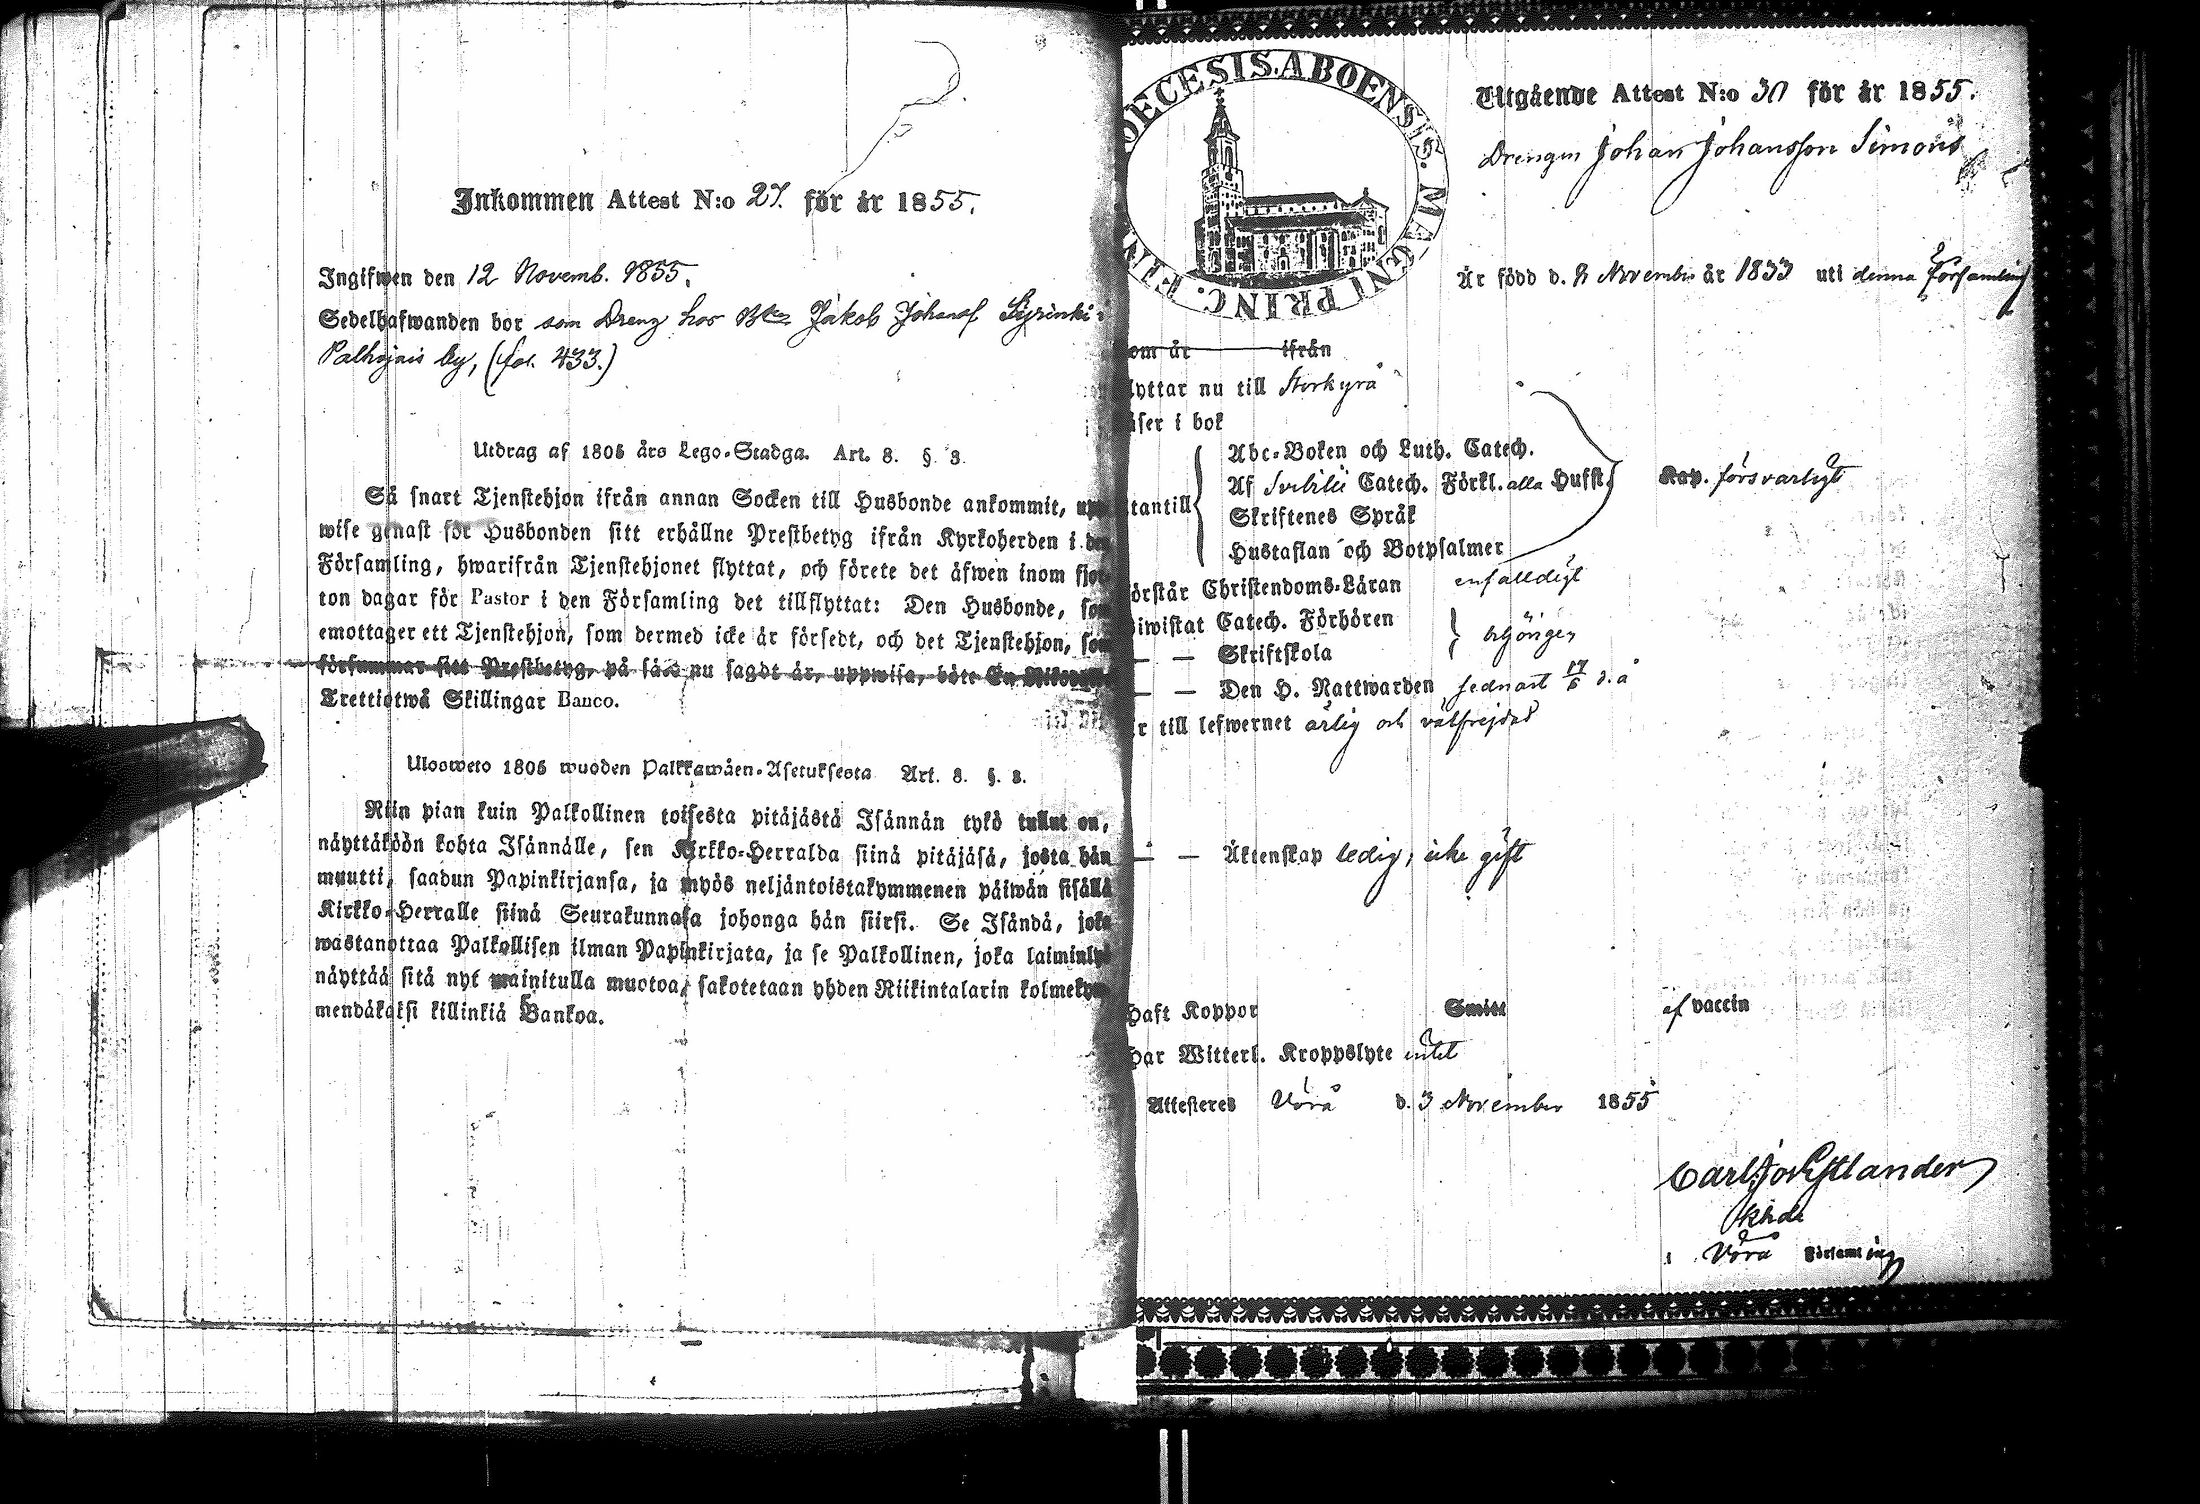 Inkommen Attest N:o 27. för år 1855.
Ingifwen den 12 Novemb. 1855.
Sedelhafwanden bor som Dreng hos Jakob Johanss.
by, (fol. 433.)
Utdrag af 1805 års Lego-Stadga. Art. 8. §. 3.
Så snart Tjenstehjon ifrån annan Socken till Husbonde ankommit, upp
wise genast för Husbonden sitt erhållne Prestbetyg ifrån Kyrkoherden i den
Församling, hwarifrån Tjenstehjonet flyttat, och förete det äfwen inom fjor
ton dagar för Pastor i den Församling det tillflyttat: Den Husbonde, som
emottager ett Tjenstehjon, som dermed icke är försedt, och det Tjenstehjon, som
försummar sitt Prestbetyg, på sätt nu sagdt är, uppwisa, böte En
Trettiotwå Skillingar Banco.
Ulosweto 1805 wuoden Palkkawäen-Asetuksesta Art. 8. §. 3.
Niin pian kuin Palkollinen toisesta pitäjästä Isännän tykö tullut on,
näyttäköön kohta Isännälle, sen Kirkko-Herralda siinä pitäjäsä, josta hän
muutti, saadun Papinkirjansa, ja myös neljäntoistakymmenen päiwän sisällä
Kirkko-Herralle siinä Seurakunnasa johonga hän siirsi. Se Isändä, joka
wastanottaa Palkollisen ilman Papinkirjata, ja se Palkollinen, joka laiminlyö
näyttää sitä nyt mainitulla muotoa, sakotetaan yhden Riikintalarin kolmekym
mendäkaksi killinkiä Bankoa.
OECESIS. ABOENSIS. MAGNI PRINC. FIN
Utgående Attest N:o 30 för år 1855.
Drengen Johan Johansson Simons
Är född d. 8 November år 1833 uti denna Församling
om år ifrån
lyttar nu till Storkyrå
äser i bok
tantill
Abc-Boken och Luth. Catech.
Af Svebilii Catech. Förkl. alla Hufst.
Kap. försvarligt
Skriftenes Språk
Hustaflan och Botpsalmer
örstår Christendoms-Läran enfalldigt
iwistat Catech. Förhören
— — Skriftskola
— — Den H. Nattwarden sednast 17/6 d.å
r till lefwernet ärlig och välfrejdad
— — Äktenskap ledig; icke gift
Haft Koppor Smitt af vaccin
Har Witterl. Kroppslyte intet
Attesteres Vörå d. 3 November 1855
Carl Estlander
Khde
i Vörå Församling